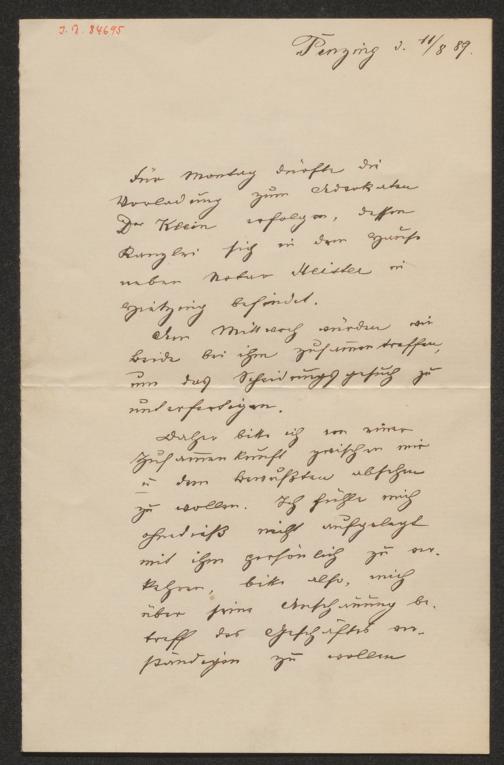 J. N. 84695
Penzing d. 11/8 89.
Für Montag dürfte die
Vorladung zum Advokaten
Dr Klein erfolgen, dessen
Kanzlei sich in dem Hause
neben Notar Meister in
Hietzing befindet.
Am Mittwoch würden wir
beide bei ihm zusammentreffen,
um das Scheidungsgesuch zu
unterfertigen.
Daher bitte ich von einer
Zusammenkunft zwischen mir
u dem Bewußten absehen
zu wollen. Ich fühle mich
ohnedieß nicht aufgelegt
mit ihm persönlich zu ver-
kehren, bitte also, mich
über seine Anschauung be-
treff des Geschäftes ver-
ständigen zu wollen